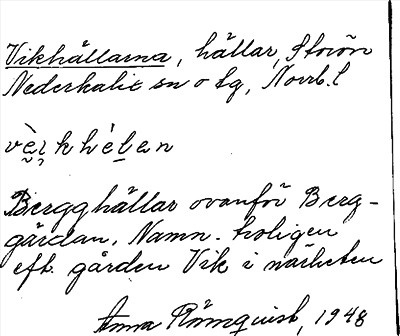 Vikhällarna, hällar, Storön
Nederkalix sn o tg, Norrb. l
vè̬ı̨khè́ḷan
Bergghällar ovanför Berg-
gårdan. Namn. troligen
eft. gården Vik i närheten
Anna Römquist, 1948